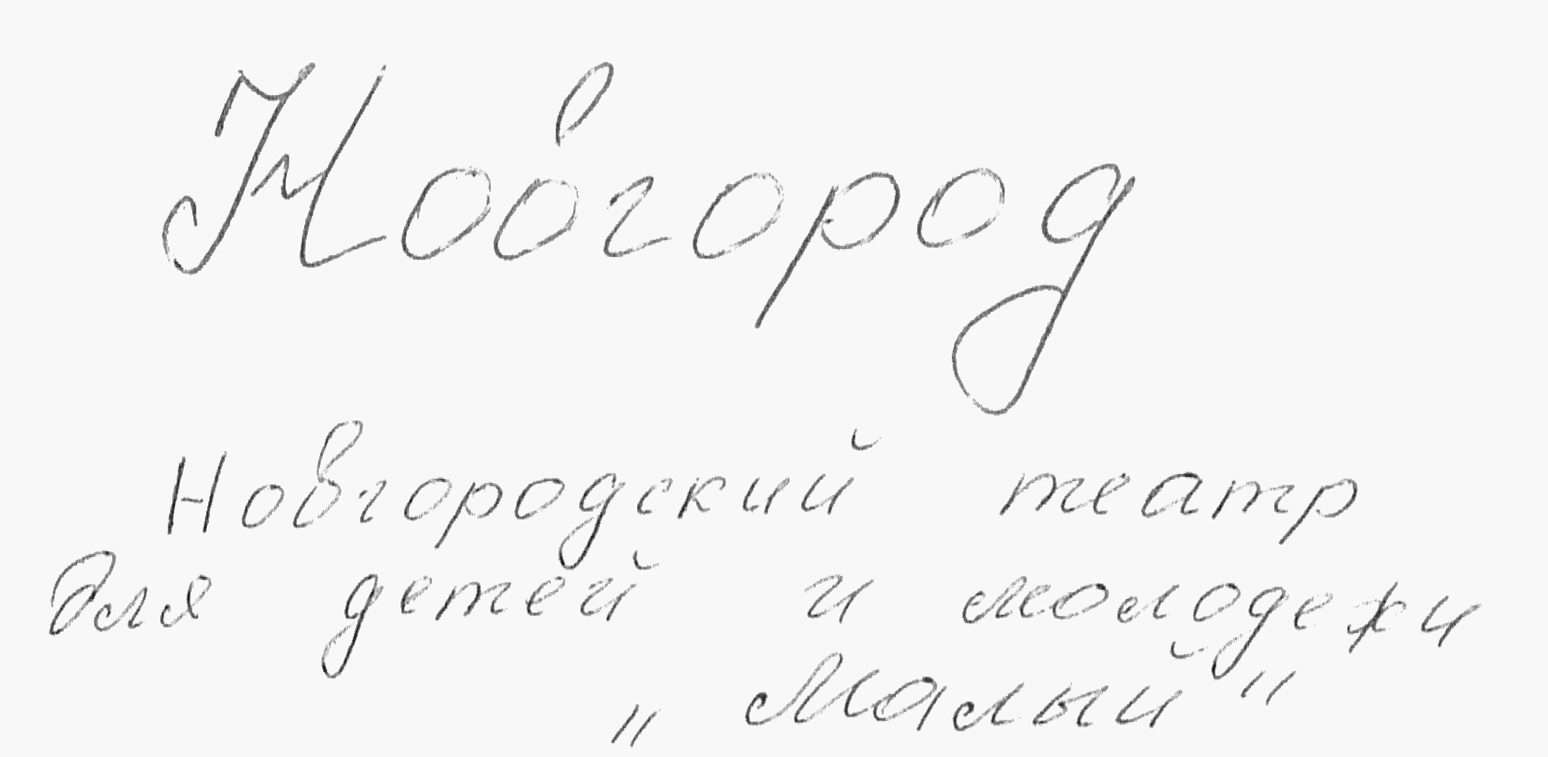 Новгород
Новгородский театр
для детей и молодежи
„Малый"